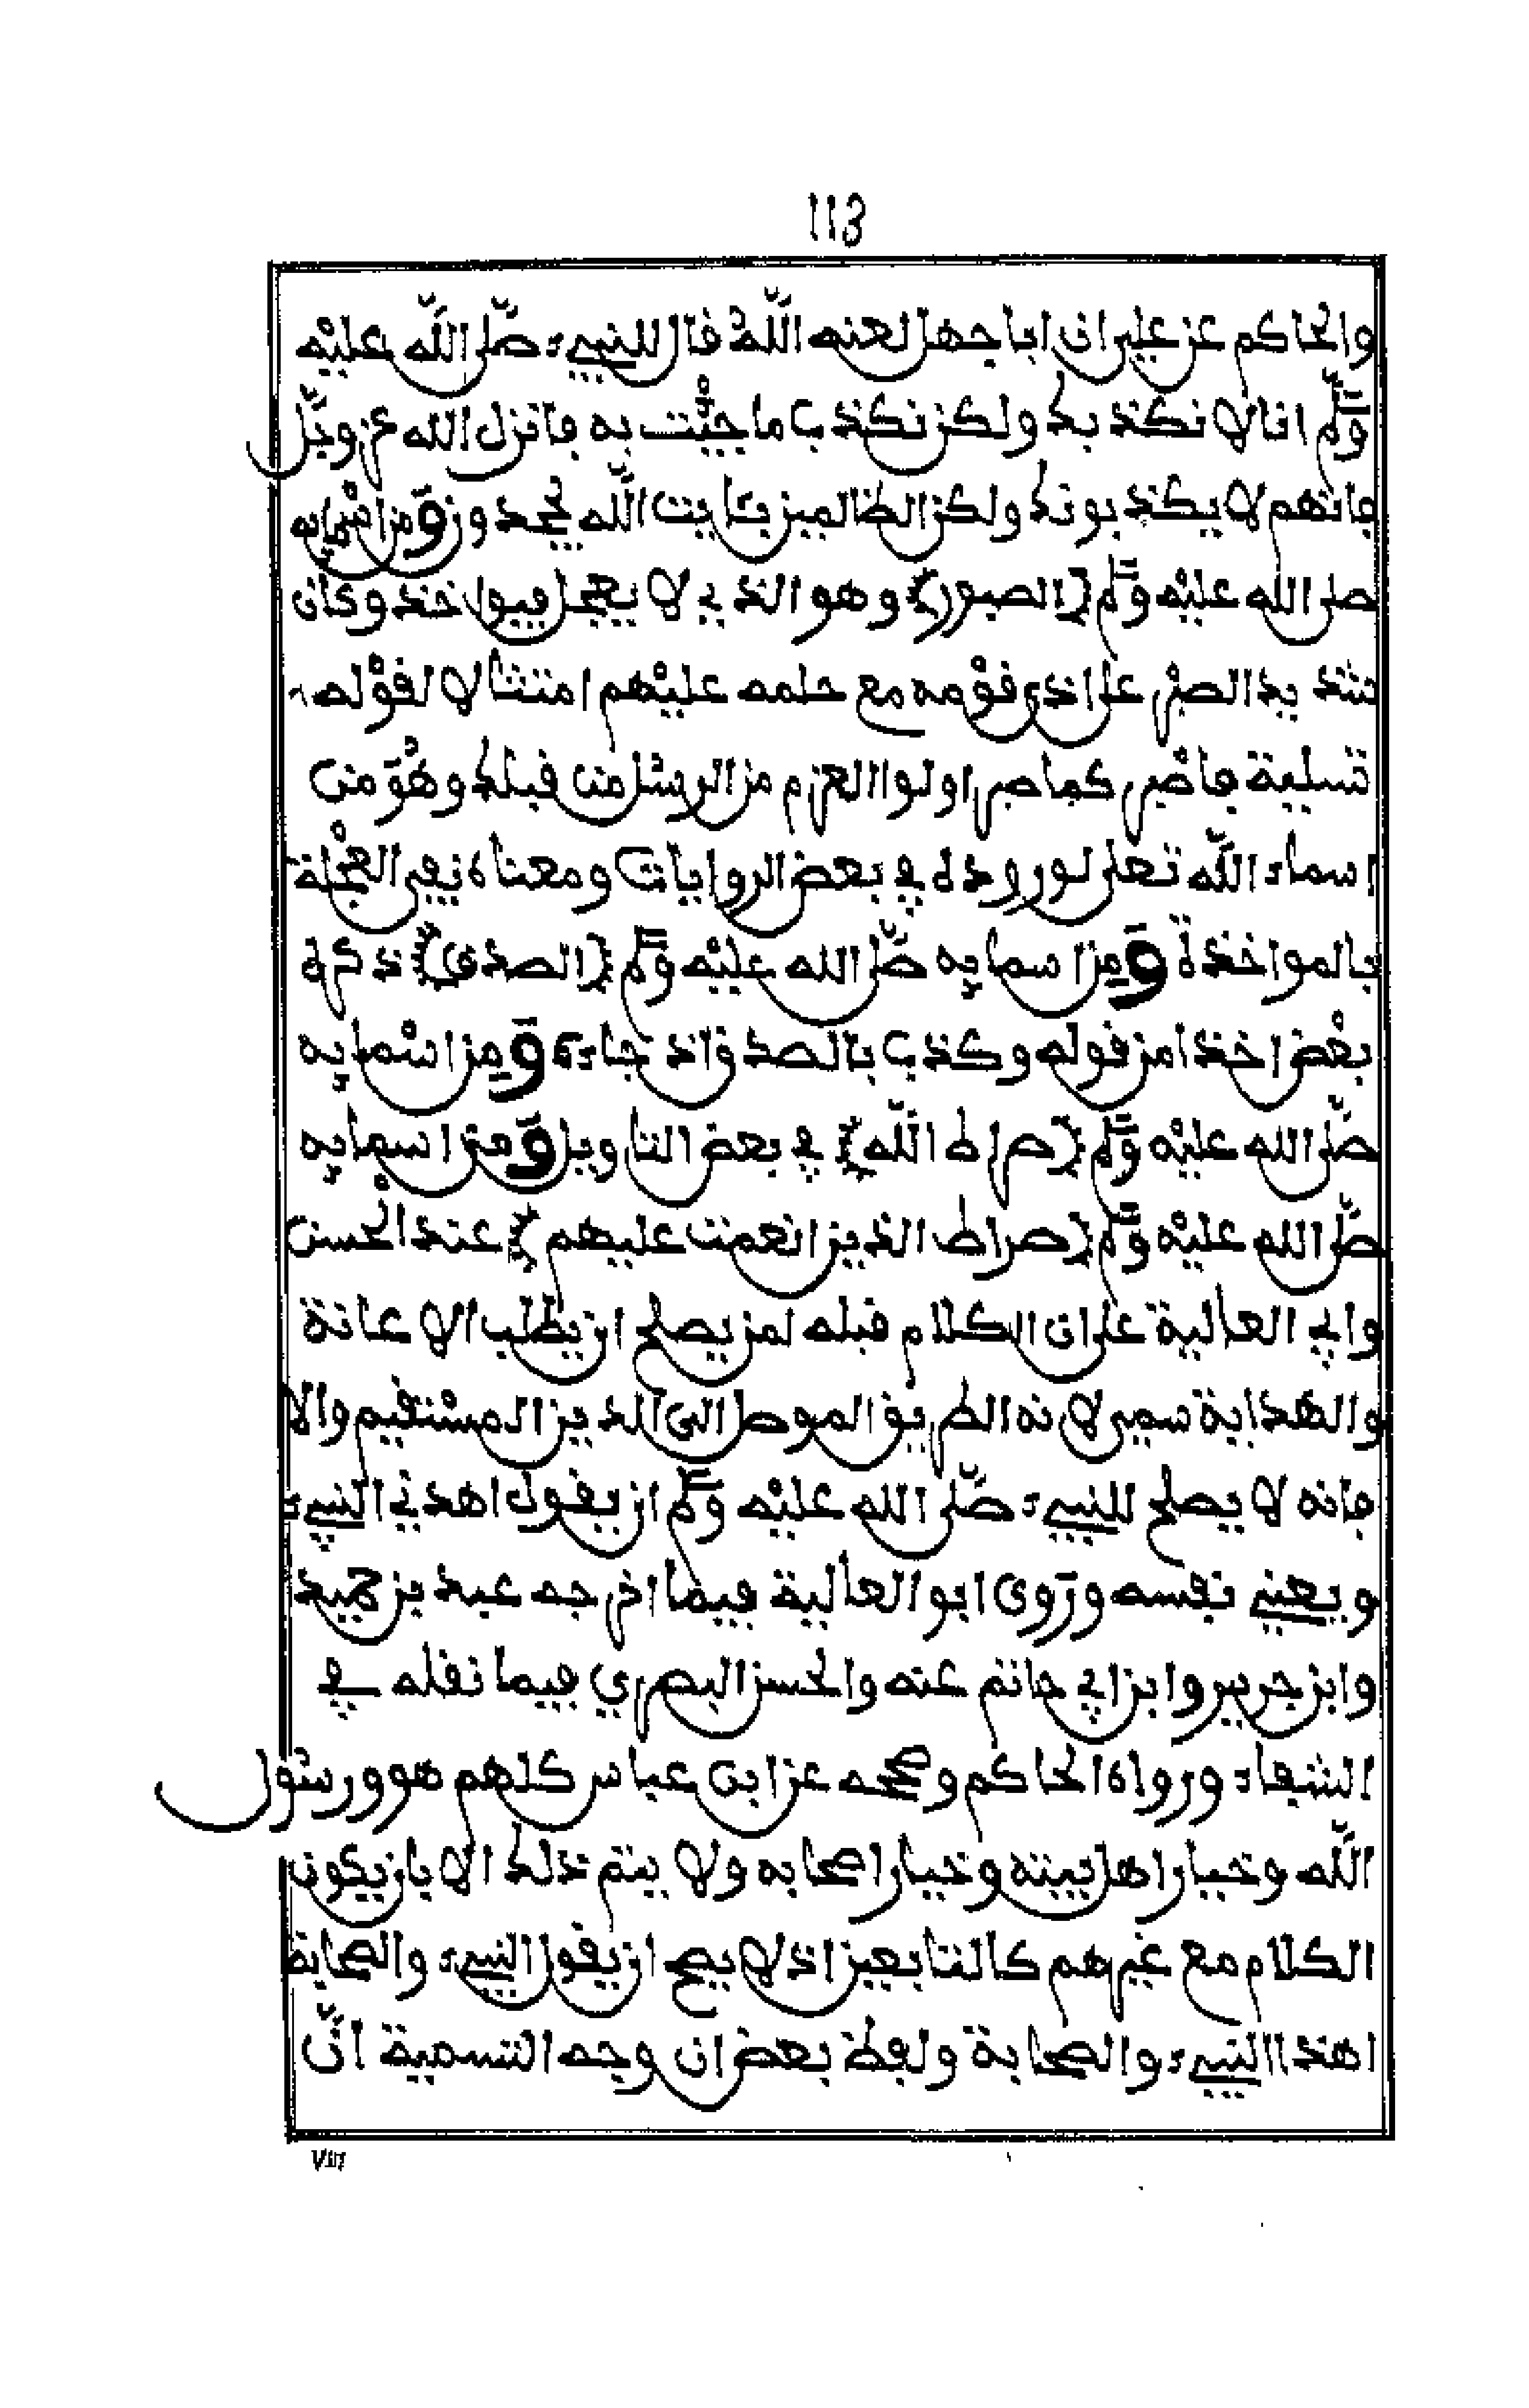 113
والحاكم عن علي ان اباجهل لعنه اللّه قال للنبيء صلّى اللّه عليْه
وسلّم انا لا نكذ بك ولكن نكذب ما جيْت به فانزل الله عز وجلّ
فانهم لا يكذ بونك ولكن الظالمين بـٔايت اللّه يجحدون ومن اسْمايه
صلى الله عليْه وسلّم {الصبور} وهو الذي لا يعجل فيواخذ وكان
شديد الصبْر على اذى قوْمه مع حلمه عليْهم امتثالا لقوْله
تسلية فاصْبر كما صبر اولوا العزم من الرسْل من قبلك وهُوَ من
اسماء اللّه تعلى لوروده في بعض الروايات ومعناه نفي العجْلة
بالمواخذة ومن اسمايه صلّى الله عليْه وسلّم {الصدق} ذكره
بعْض اخذا من قوله وكذب بالصدق اذ جاءه ومن اسْمايه
صلّى الله عليْه وسلّم {صراط اللّه} في بعض التاويل ومن اسمايه
صلّى الله عليْه وسلّم {صراط الذين انعمت عليهم} عند الْحسن
وابي العالية على ان الكلام قبله لمن يصلح ان يطلب الاعانة
والهداية سمي لانه الطريق الموصل الى الدين المسْتقيم والا
فانه لا يصلح للنبيء صلّى الله عليْه وسلّم ان يقول اهدني النبيء
ويعني نفسه وروى ابو العالية فيما اخرجه عبد بن حميد
وابن جرير وابن ابي حاتم عنه والحسن البصري فيما نقله في
الشفاء ورواه الحاكم وصححه عن ابن عباس كلهم هو ورسُول
اللّه وخيار اهل بيته وخيار اصحابه ولا يتم ذلك الا بان يكون
الكلام مع غيرهم كالتابعين اذ لا يصح ان يقول النبيء والصحابة
اهدنا النبيء والصحابة ولفظ بعض ان وجه التسمية انّ
VIII